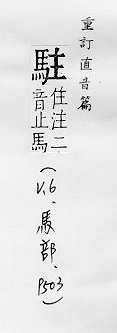 重訂直音篇
駐
住注二
音止馬
(V.6、馬部、P503)